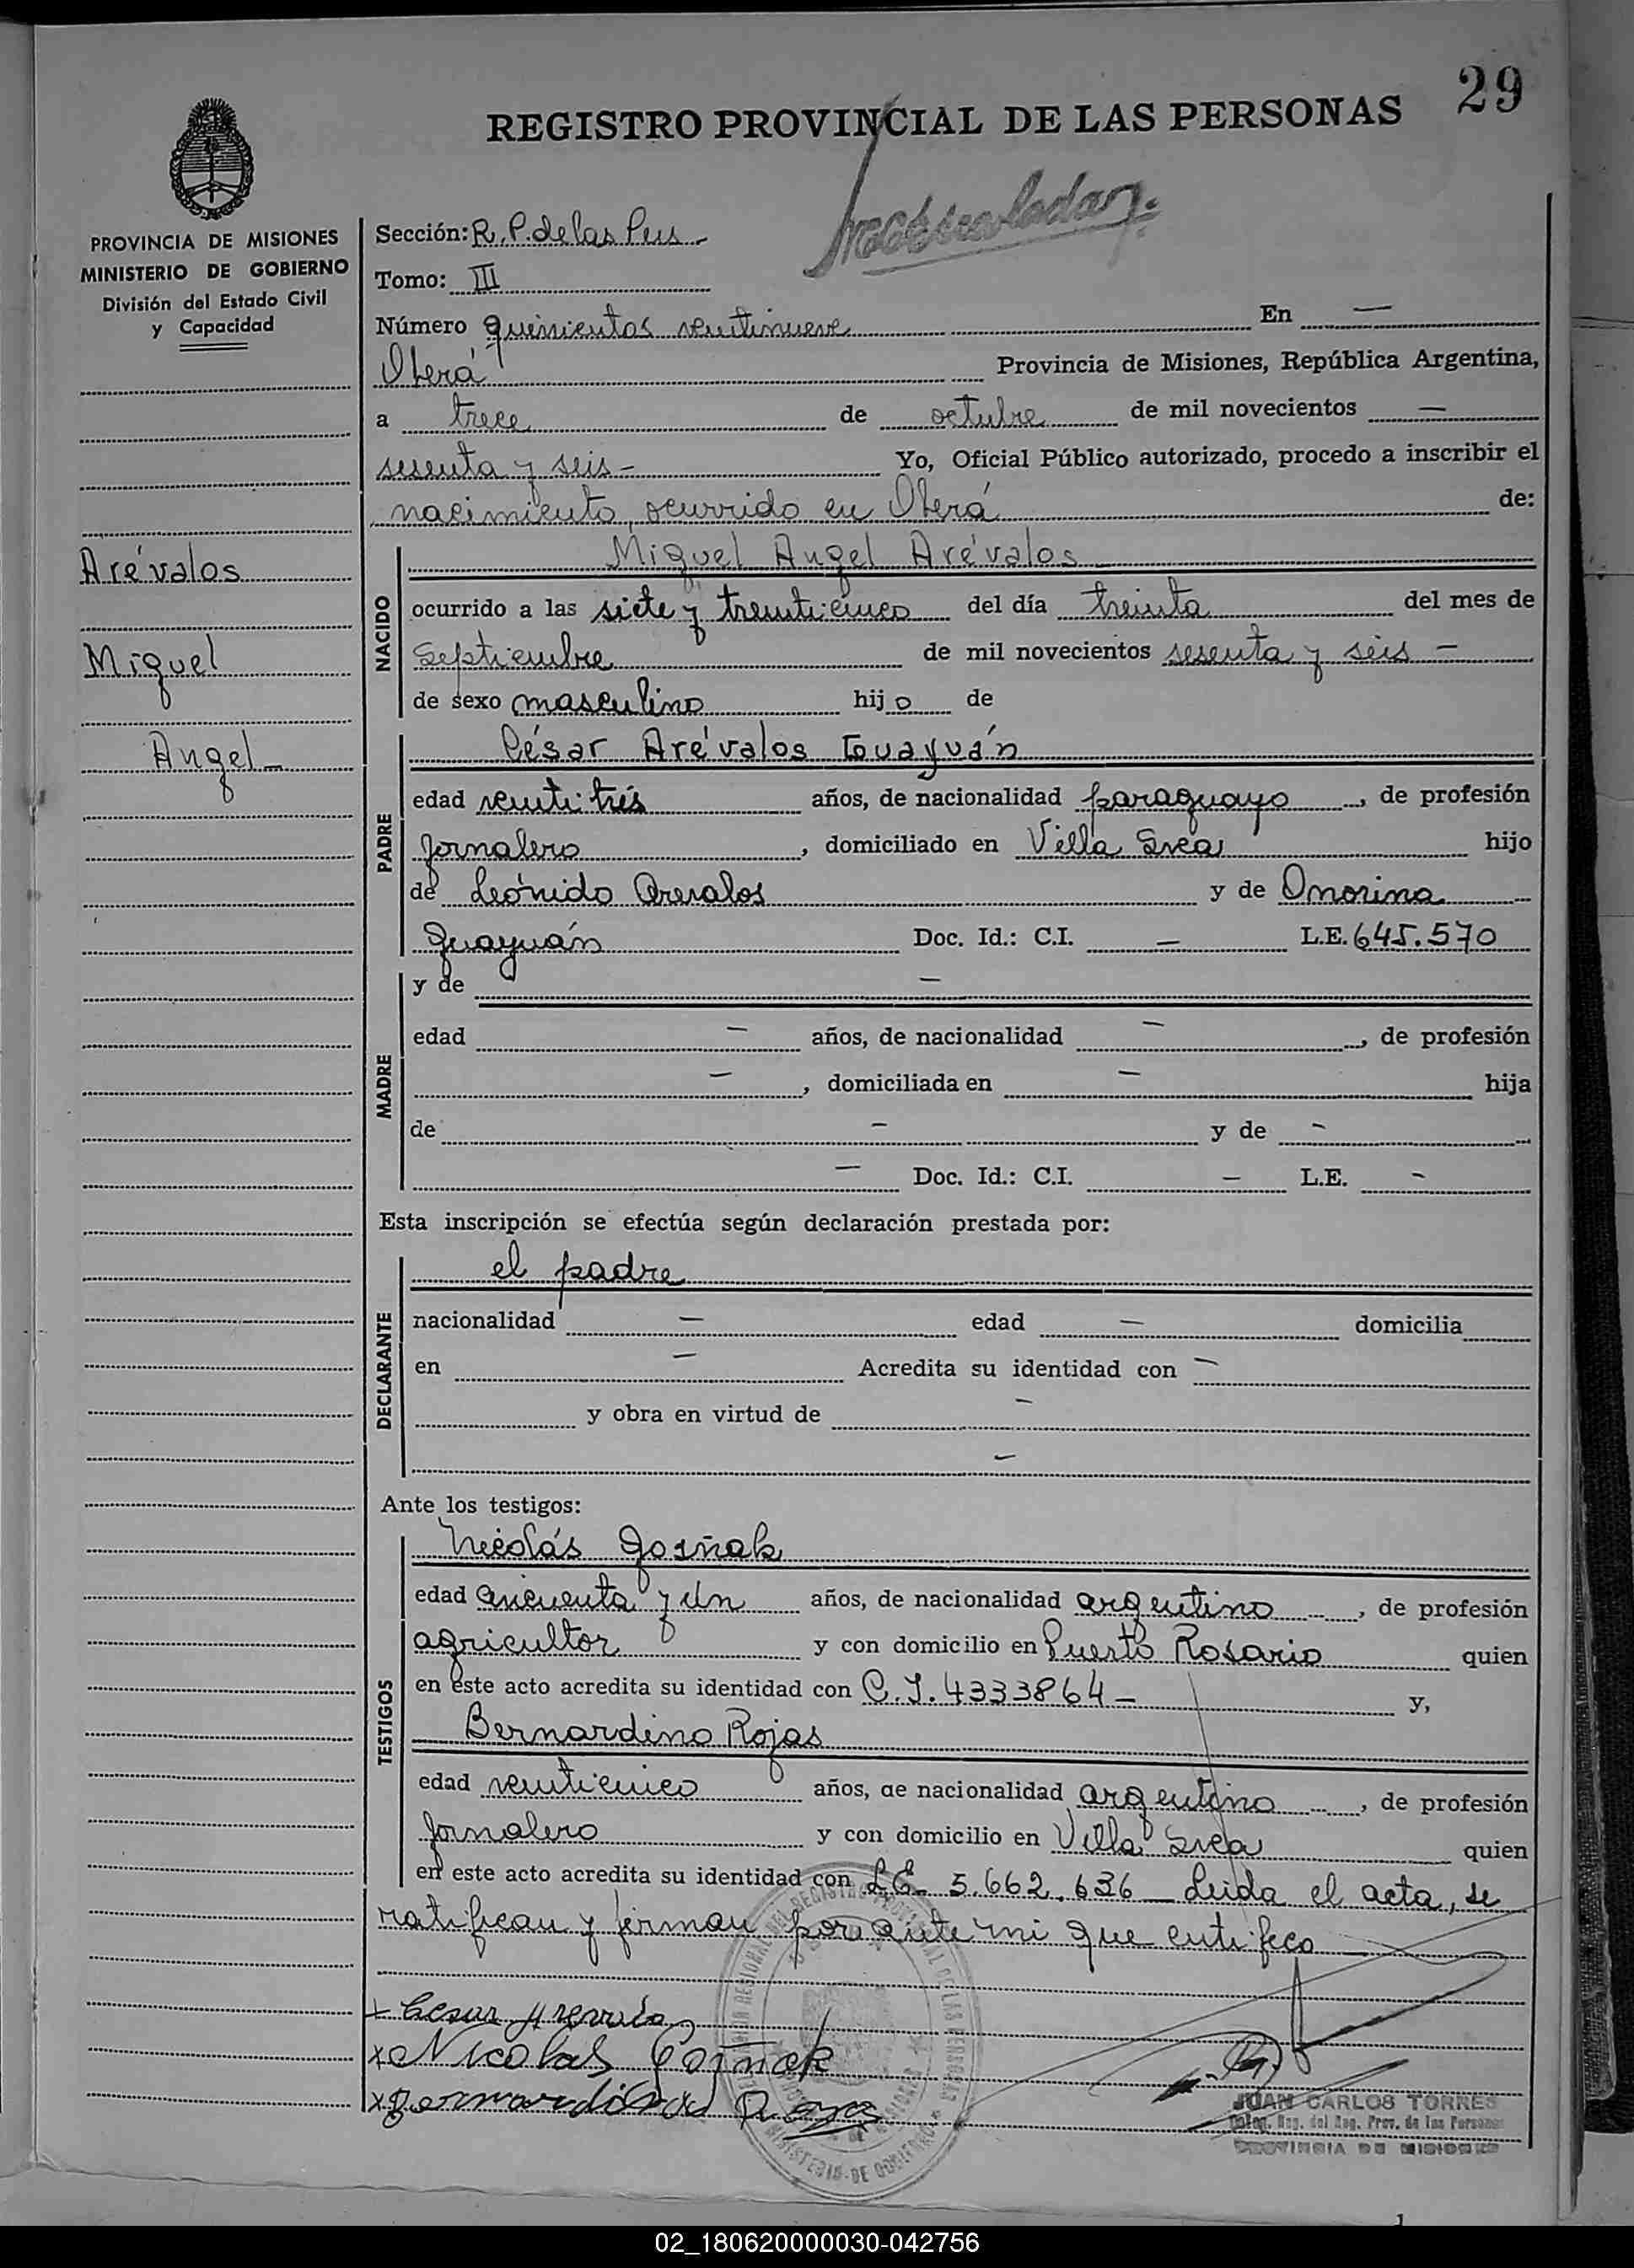 29
REGISTRO PROVINCIAL DE LAS PERSONAS
PROVINCIA DE MISIONES
MINISTERIO DE GOBIERNO
División del Estado Civil
y Capacidad
Arévalos
Miguel
Angel
Sección: R. P. de las Pers
Tomo: III
Número quinientos veintinueve En —
Oberá Provincia de Misiones, República Argentina,
a trece de octubre de mil novecientos —
sesenta y seis - Yo, Oficial Público autorizado, procedo a inscribir el
nacimiento, ocurrido en Oberá de:
NACIDO
Miguel Angel Arévalos
ocurrido a las siete y treinticinco del día treinta del mes de
Septiembre de mil novecientos sesenta y seis -
de sexo masculino hijo de
PADRE
César Arévalos Guayuán
edad veintitrés años, de nacionalidad paraguayo, de profesión
Jornalero, domiciliado en Villa Svea hijo
de Leónido Arevalos y de Onorina
Guayuán Doc. Id.: C.I. — L.E. 645.570
MADRE
y de —
edad — años, de nacionalidad —, de profesión
—, domiciliada en — hija
de - y de -
— Doc. Id.: C.I. — L.E. -
Esta inscripción se efectúa según declaración prestada por:
DECLARANTE
el padre
nacionalidad — edad — domicilia
en — Acredita su identidad con —
y obra en virtud de —
—
Ante los testigos:
TESTIGOS
Nicolás
edad cincuenta y un años, de nacionalidad argentino, de profesión
agricultor y con domicilio en Puerto Rosario quien
en este acto acredita su identidad con C.I. 4333864 — y,
Bernardino Rojas
edad veinticinco años, de nacionalidad argentino, de profesión
Jornalero y con domicilio en Villa Svea quien
en este acto acredita su identidad con L.E. 5.662.636 — Leída el acta, se
ratifican y firman por ante mi que certifico
x Cesar
x Nicolas
x Bernardino Rojas
JUAN CARLOS TORRES
Deleg. Reg. del Reg. Prov. de las Personas
PROVINCIA DE MISIONES
1
02_180620000030-042756